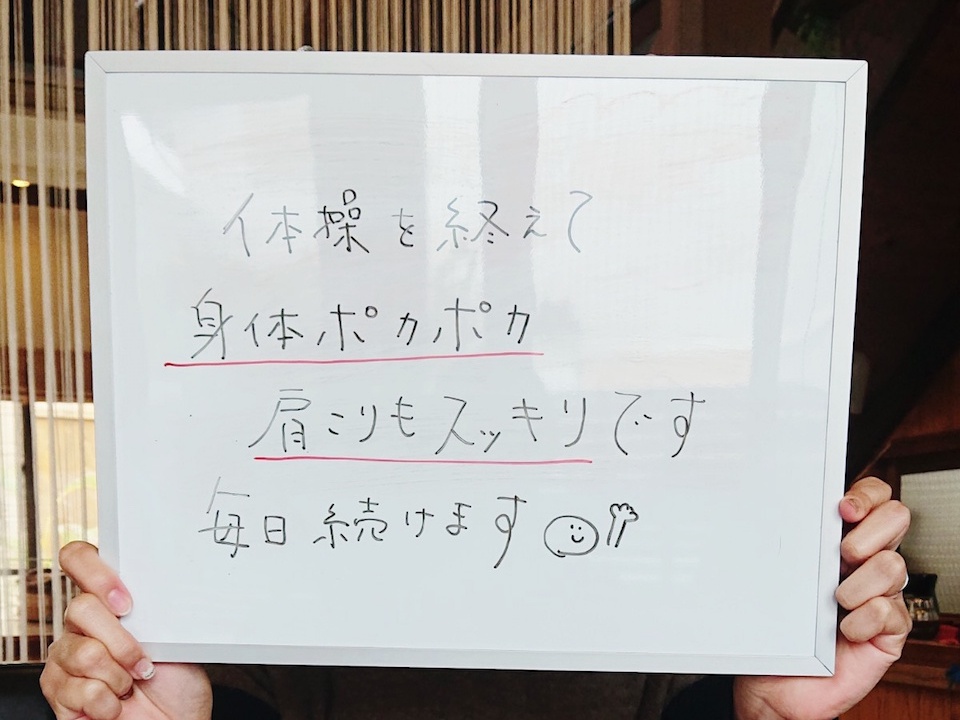 体操を終えて
身体ポカポカ
肩こりもスッキリです
毎日続けます